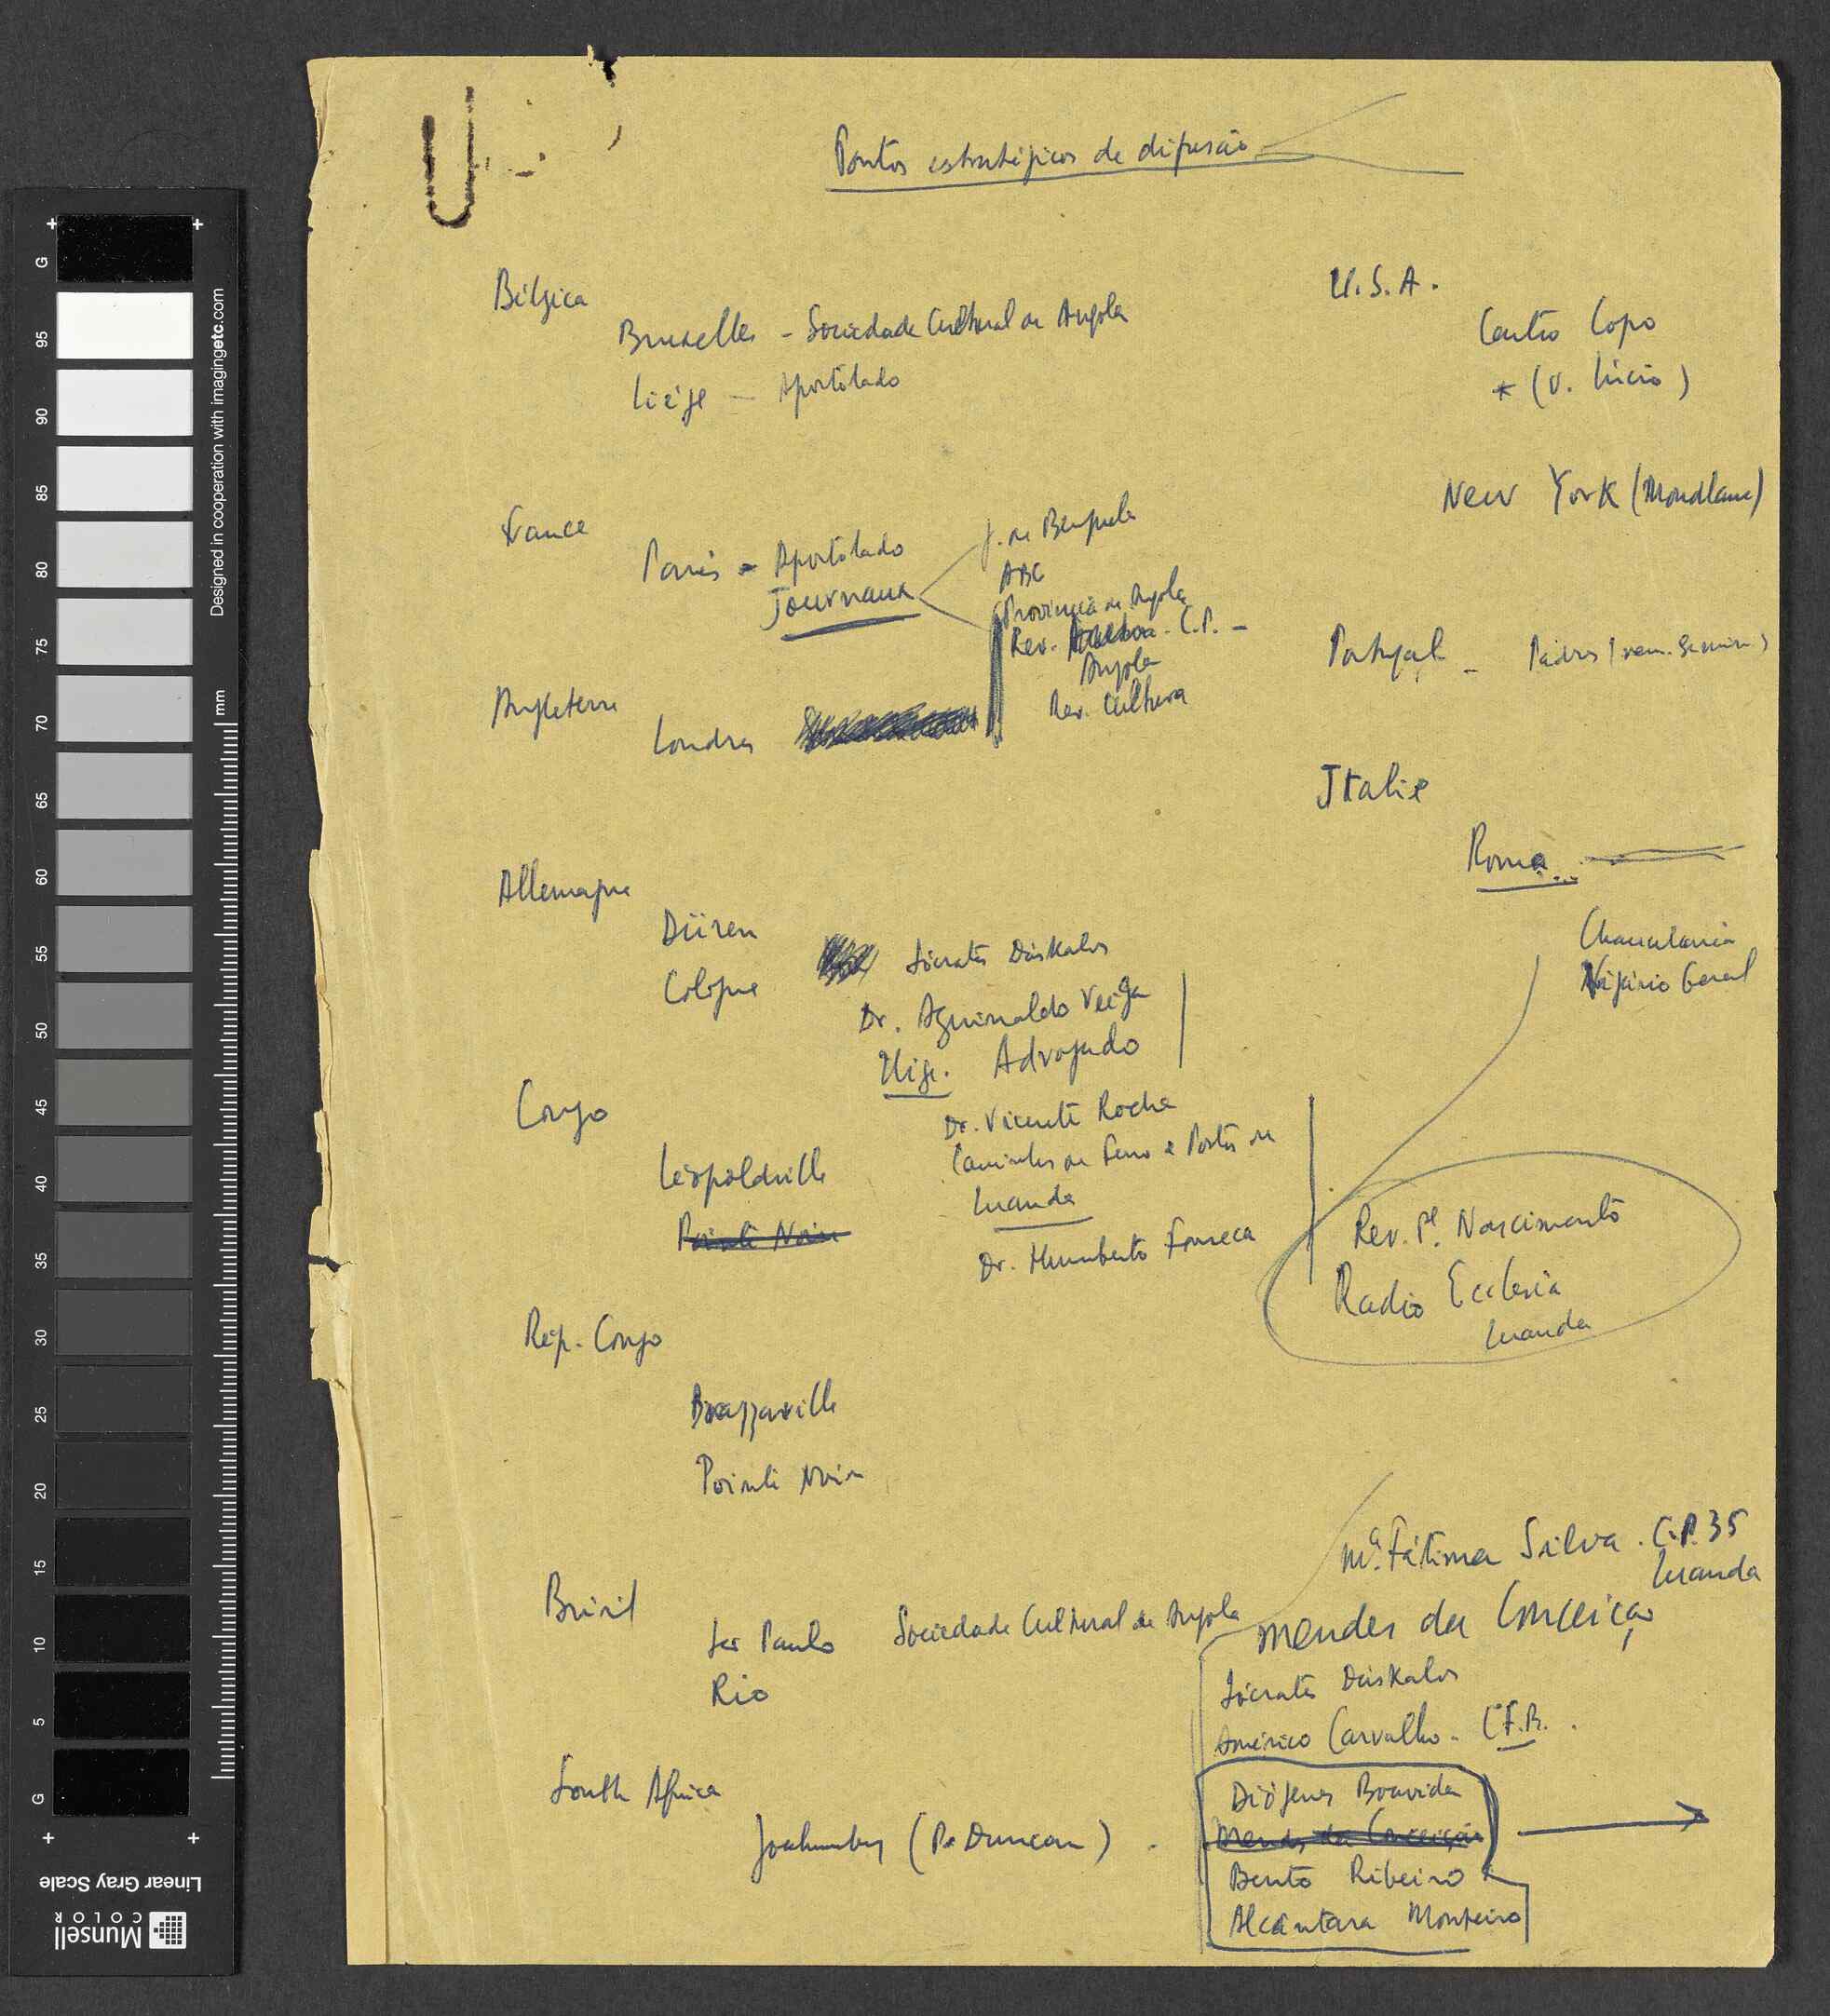 Pontos estratégicos de difusão
Bélgica
Bruxelles - Sociedade Cultural de Angola
Liège - Apostolado
France
Paris - Apostolado
Journaux
J. de Benguela
ABC
Provincia de Angola
Rev. - C.P. -
Angola
Rev. Cultura
Angleterre
Londres
Allemagne
Düren
Cologne
Sócrates Dáskalos
Dr. Aguinaldo Veiga
Uige. Advogado
Congo
Léopoldville
Pointe Noire
Dr. Vicente Rocha
Caminhos de Ferro e Portos de
Luanda
Dr. Humberto Fonseca
Rép. Congo
Brazzaville
Pointe Noire
Brésil
São Paulo Sociedade Cultural de Angola
Rio
South Africa
(P. Duncan)
U.S.A.
* (v. Lúcio)
New York (Mondlane)
Portugal - Padres
Italie
Roma
Chancelaria
Vigário Geral
Rev. Pe. Nascimento
Radio Ecclesia
Luanda
Ma. Fátima Silva. C.P. 35
Luanda
Mendes da Conceição
Sócrates Dáskalos
Américo Carvalho - C.F.B.
Diógenes Boavida
Mendes da Conceição
Bento Ribeiro
Alcântara Monteiro
Designed in cooperation with imagingetc.com
mm
G
95
90
85
80
75
70
65
60
55
50
45
40
35
30
25
20
15
10
5
G
Linear Gray Scale
Munsell
COLOR